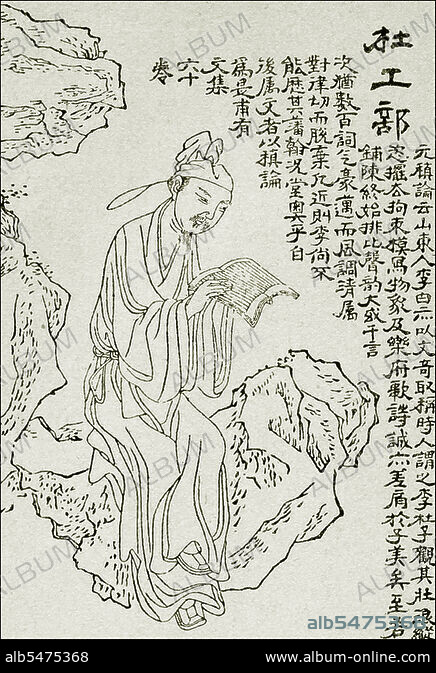 杜工部
元稹論云山東人李白亦以文奇取稱時人謂之李杜予觀其壯浪縱
恣擺去拘束模寫物象及樂府歌詩誠亦差肩於子美矣至若
鋪陳終始排比聲韵大或千言
次猶數百詞气豪邁而風調清属
對律切而脫棄凡近則李尚不
能歷其藩翰况堂奥乎自
後属文者以稹論
為是甫有
文集
六十
卷
alb5475368
alb5475368
www.album-online.com